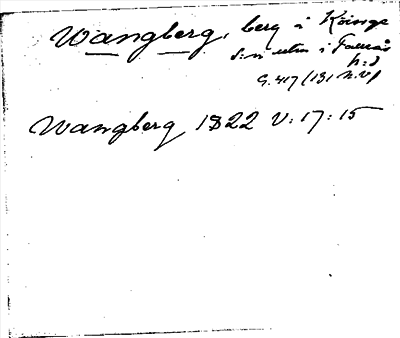 Wangberg, berg i Köinge
s:n utm i Faurås
h:d
G. 417 (13, n.v)
Wangberg 1822 V:17:15